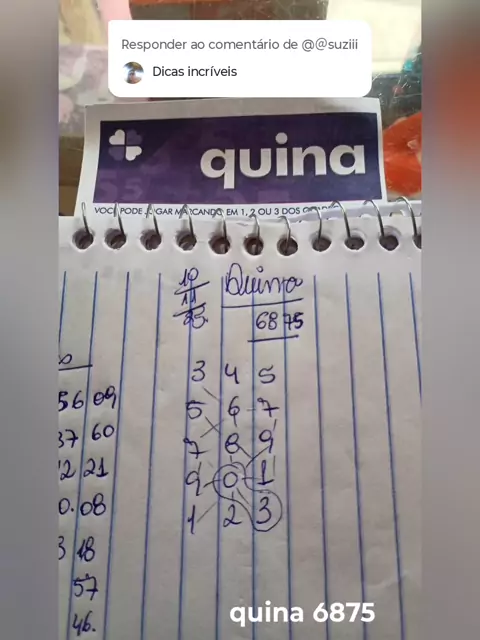 Responder ao comentário de @@suziii
Dicas incríveis
quina
VOCÊ PODE JOGAR MARCANDO EM 1, 2 OU 3 DOS
10
11
25.
Quina
6875
3 4 5
5 6 7
7 8 9
9 0 1
1 2 3
56 09
37 60
12 21
0.08
3 18
57
46.
quina 6875